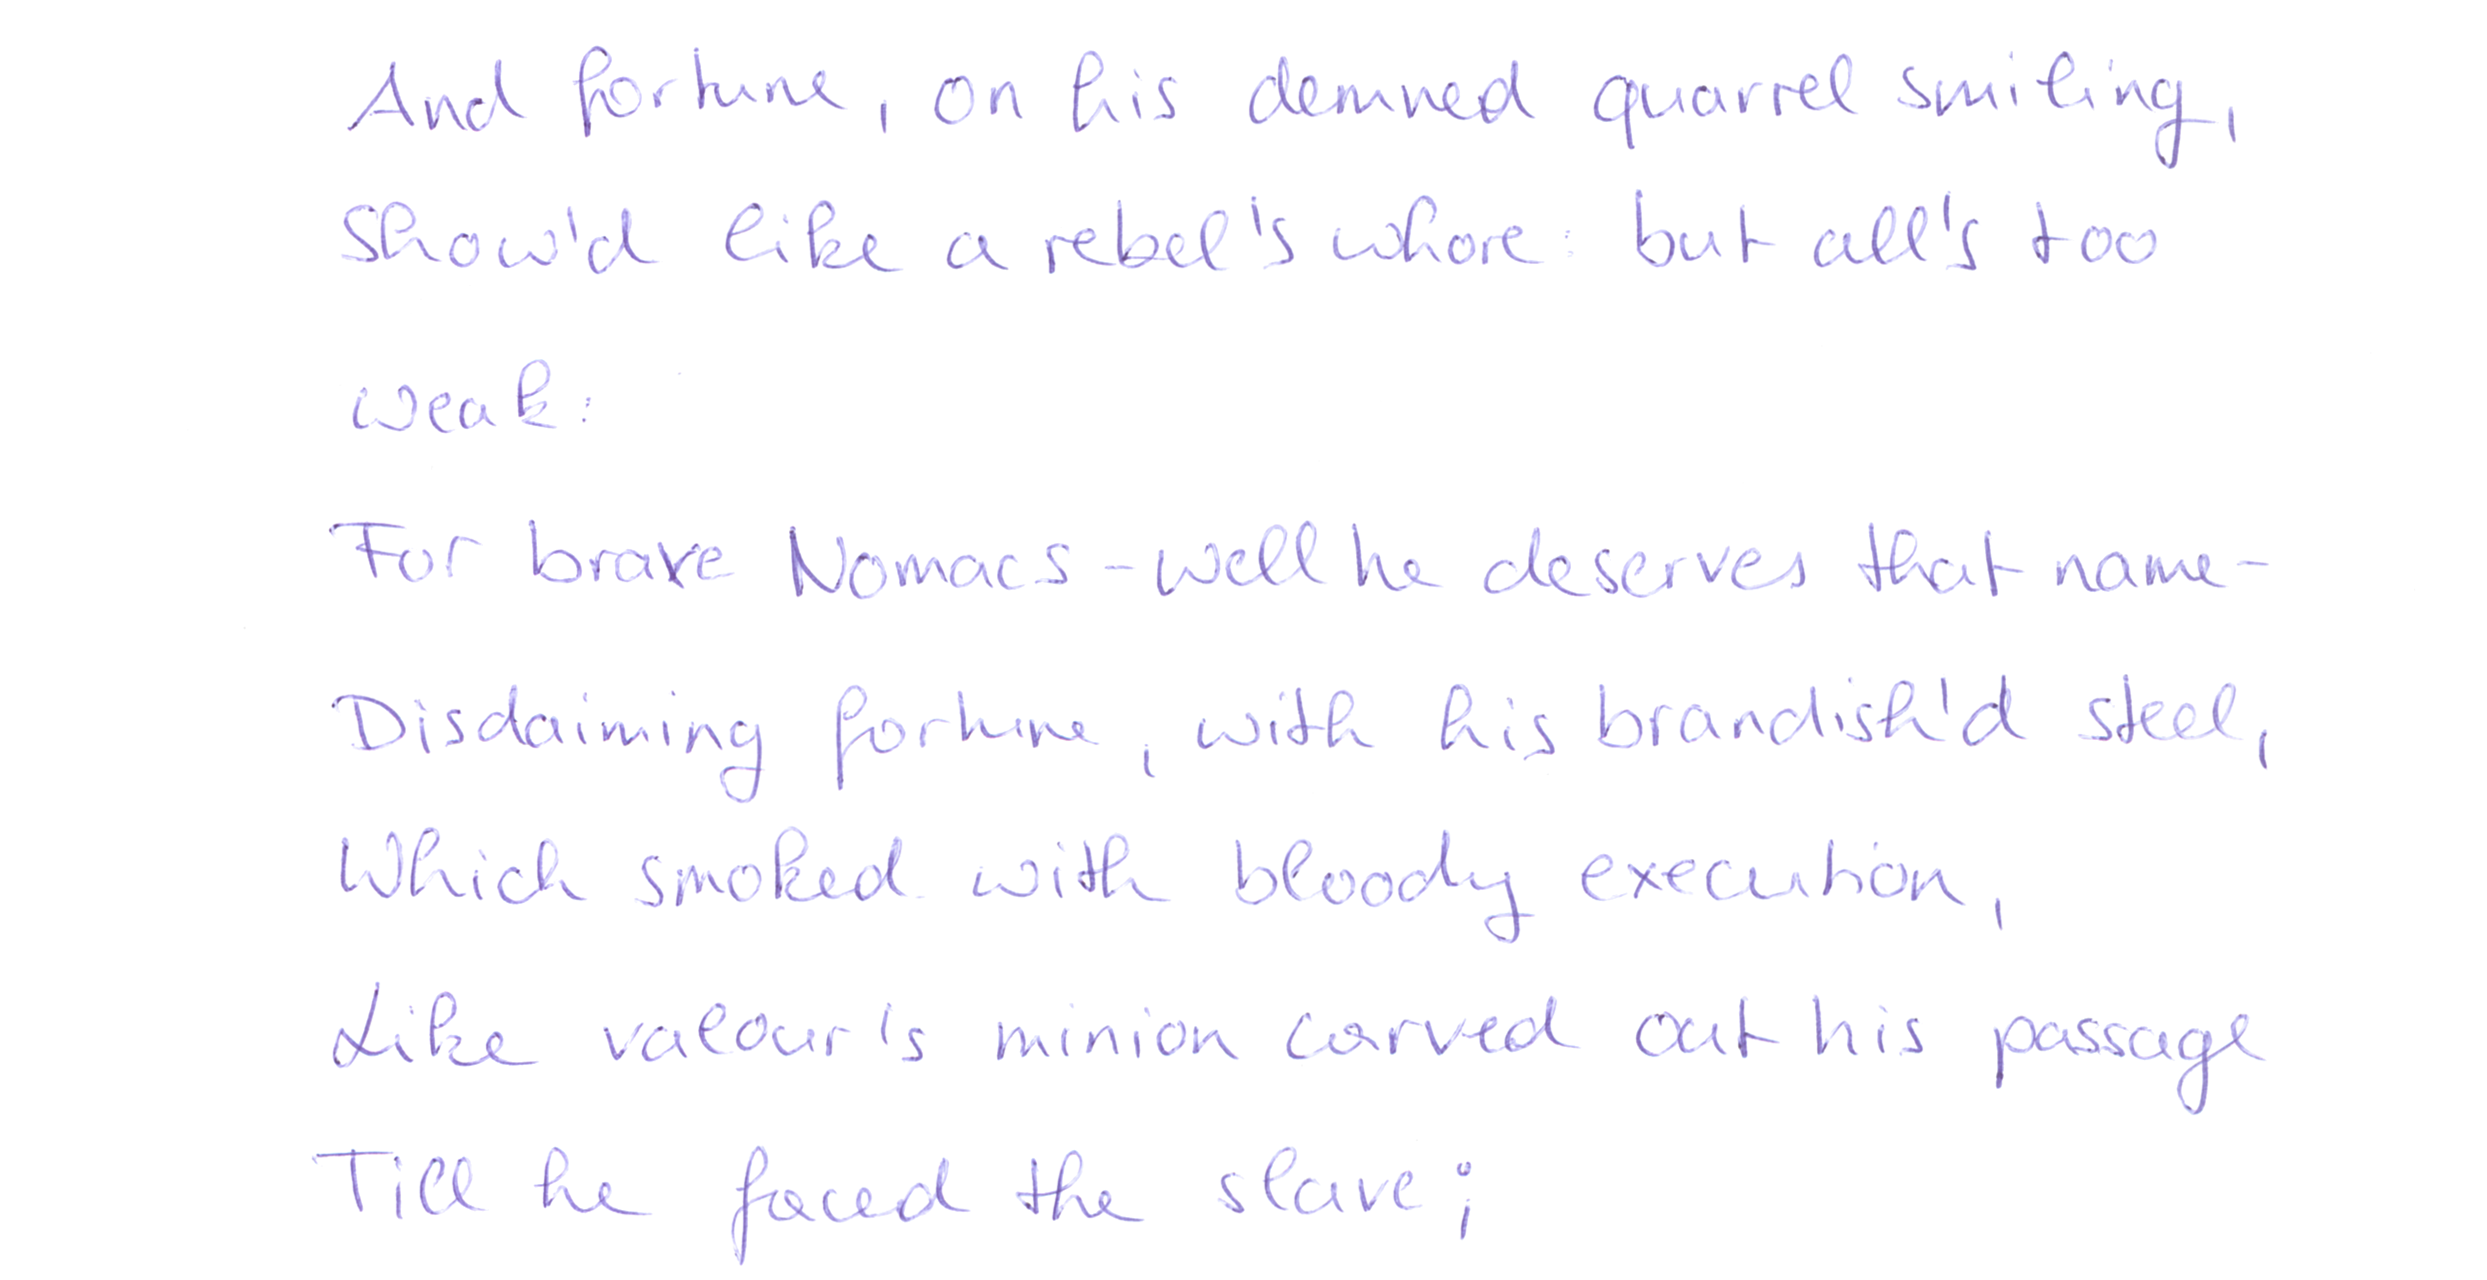 And fortune, on his demned quarrel smiling,
Show'd like a rebel's whore: but all's too
weak:
For brave Nomacs - well he deserves that name -
Disdaiming fortune, with his brandish'd steel,
Which smoked with bloody execution,
Like valour's minion carved out his passage
Till he faced the slave;